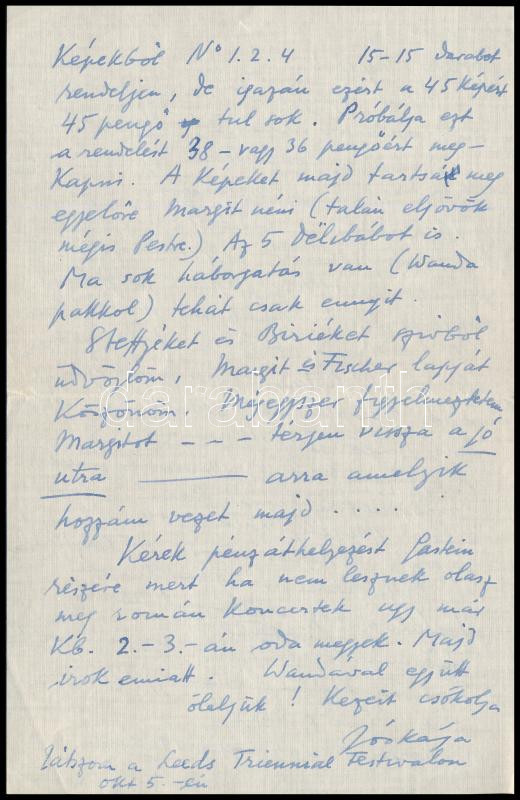 Képekből No 1. 2. 4 15-15 darabot
rendeljen, de igazán ezért a 45 képért
45 pengő tul sok. Próbálja ezt
a rendelést 38 - vagy 36 pengőért meg-
kapni. A képeket majd tartsa meg
egyelőre Margit néni (talán eljövök
mégis Pestre.) Az 5 Délibábot is.
Ma sok háborgatás van (Wanda
pakkol) tehát csak ennyit.
Steffjéket és Biriéket szivből
üdvözlöm, Margit és Fischer lapját
köszönöm. Mégegyszer figyelmeztetem
Margitot - - - térjen vissza a jó
utra ——— arra amelyik
hozzám vezet majd . . . . .
Kérek pénzáthelyezést Gastein
részére mert ha nem lesznek olasz
meg román koncertek ugy már
Kb. 2.-3.-án oda megyek. Majd
irok emiatt. Wandával együtt
öleljük! Kezeit csókolja
Jóskája
Játszom a Leeds Triennial Festivalon
okt 5.-én
darabanth